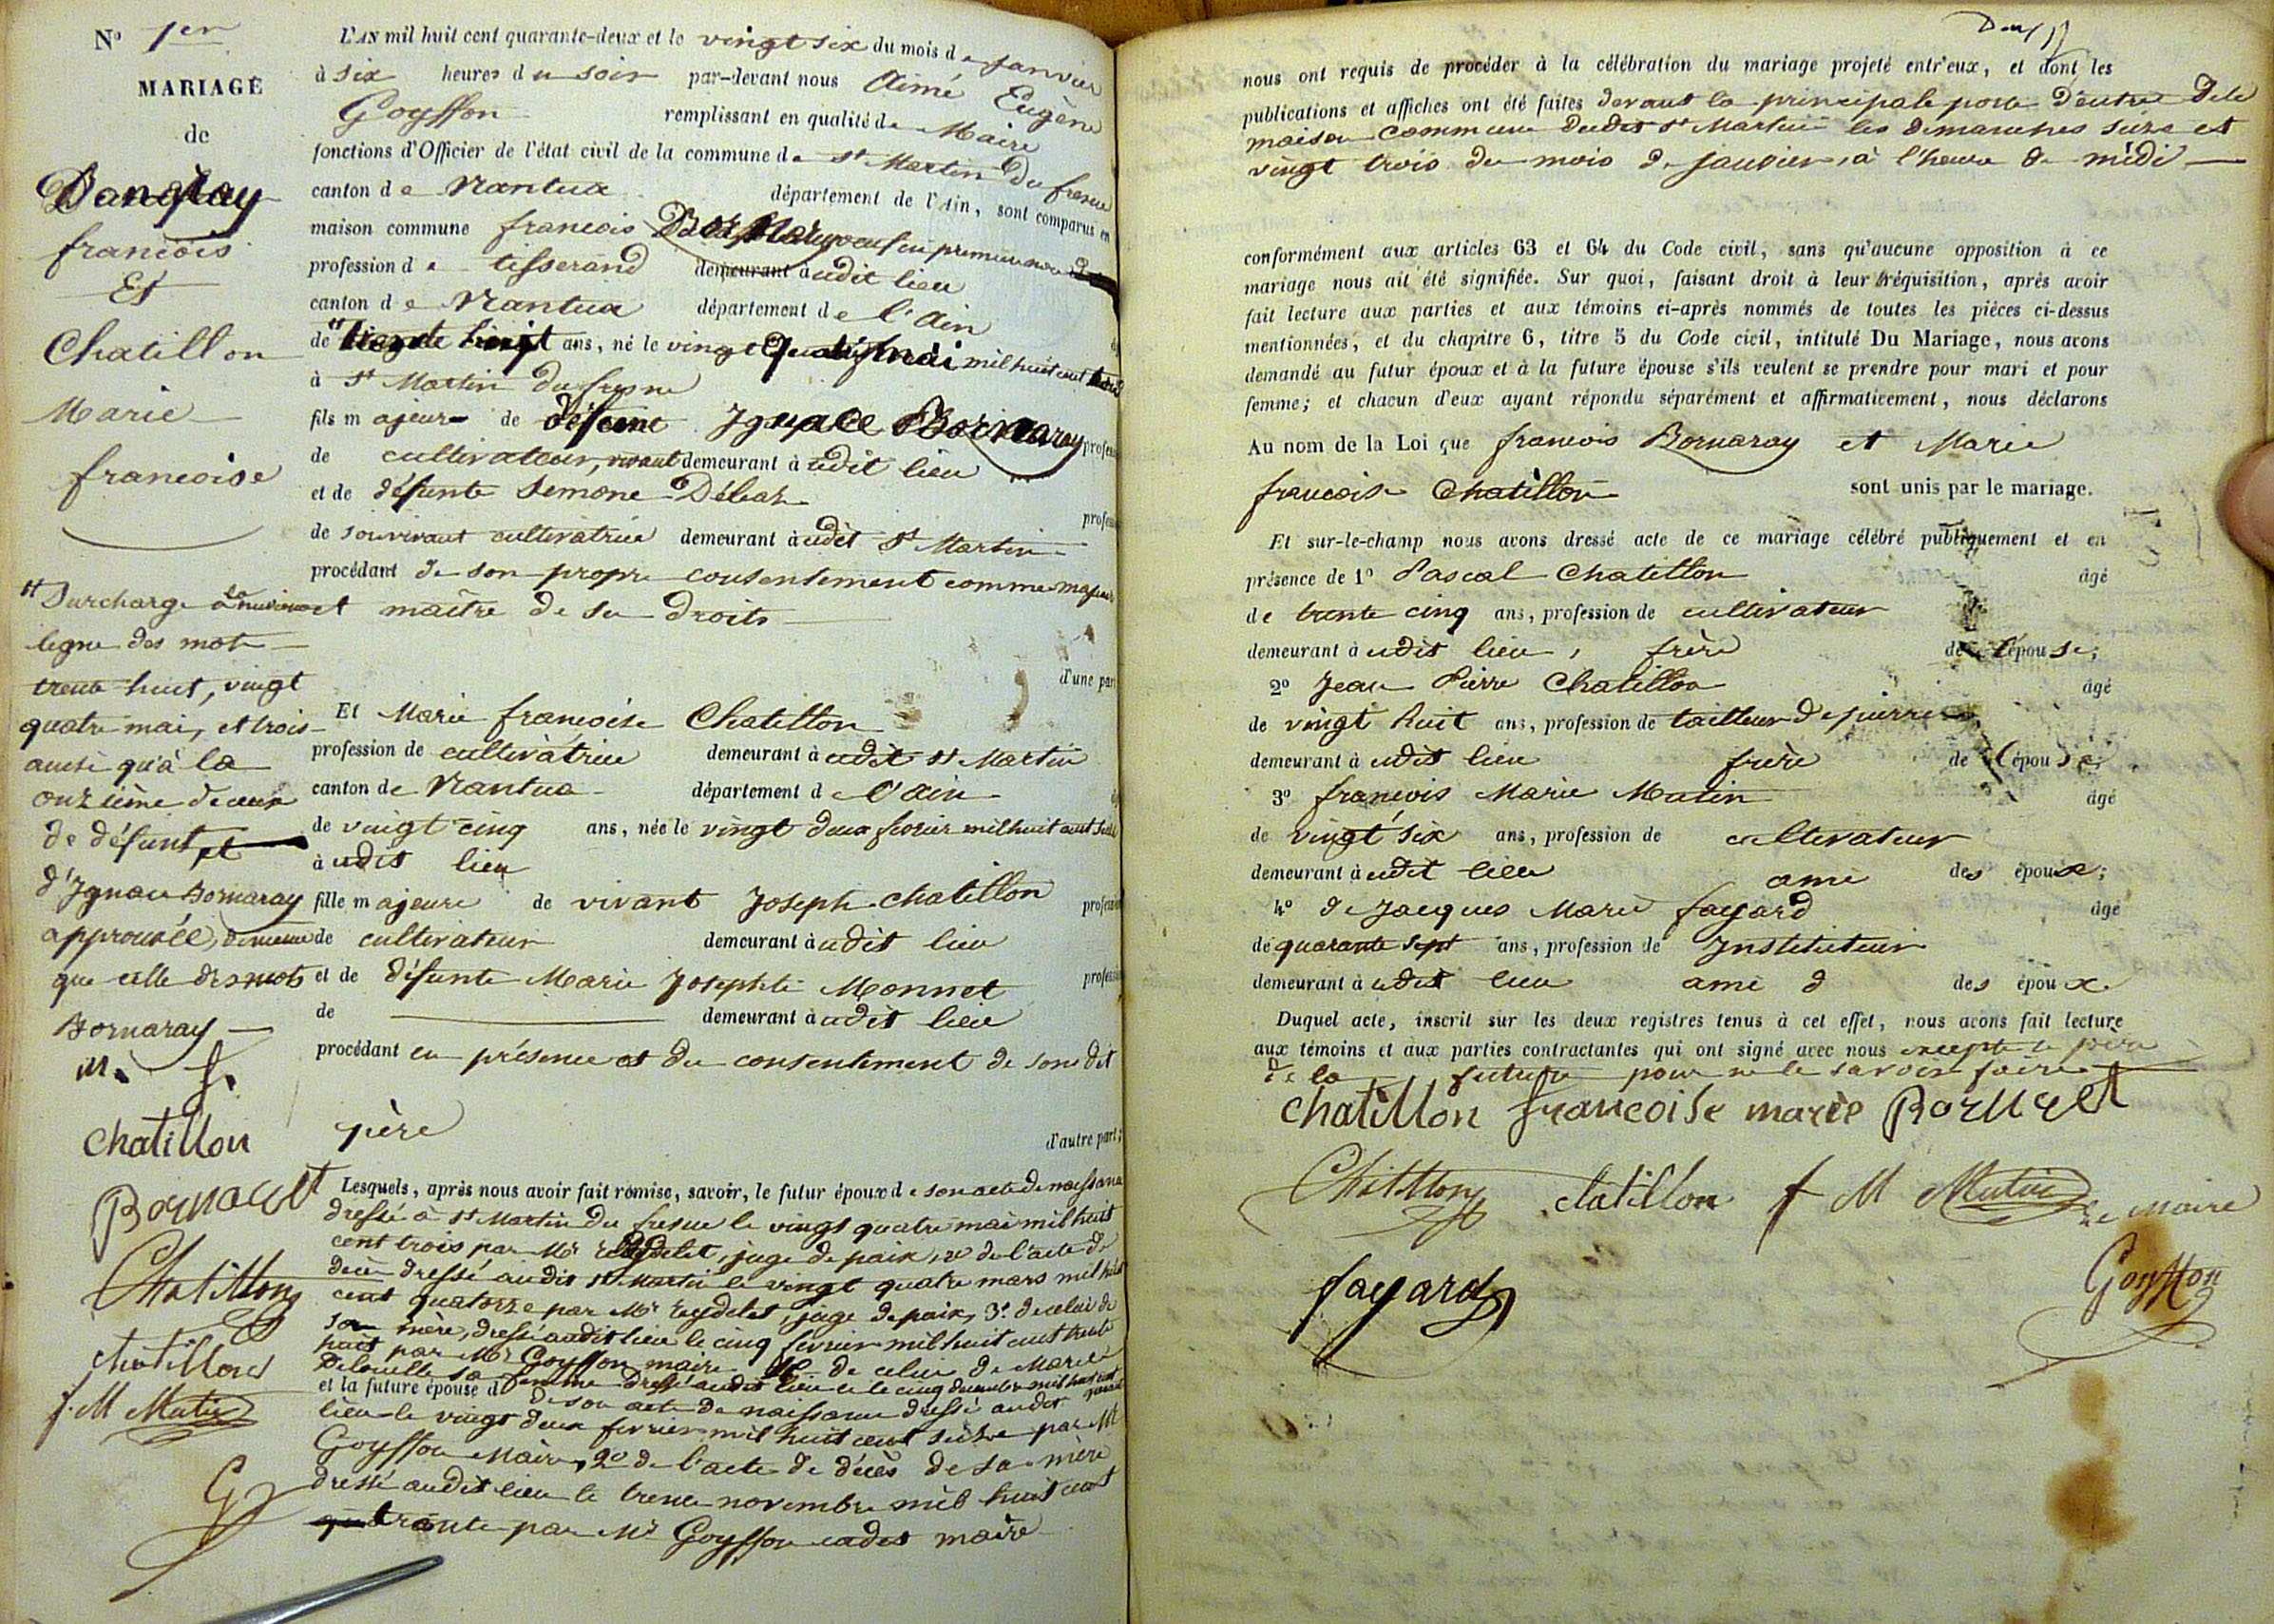 N° 1er
MARIAGE
de
françois
Et
Chatillon
Marie
françoise
L'AN mil huit cent quarante-deux et le vingt six du mois de janvier
à six heures du soir par-devant nous Aimé Eugène
Goyffon remplissant en qualité de Maire
fonctions d'Officier de l'état civil de la commune de St Martin du fresne
canton de Nantua département de l'Ain, sont comparus en
maison commune françois
profession de tisserand demeurant audit lieu
canton de Nantua département de l'Ain
de ans, né le vingt quatre mai mil huit cent
à St Martin du fresne
fils majeur de défunt Ignace Bornaray
de cultivateur, vivant demeurant audit lieu
et de défunte Simone
de son vivant cultivatrice demeurant audit St Martin
procédant de son propre consentement comme majeur
et maître de ses droits
d'une part
Et Marie françoise Chatillon
profession de cultivatrice demeurant audit St Martin
canton de Nantua département de l'Ain
de vingt cinq ans, née le vingt deux fevrier mil huit cent seize
à udit lieu
fille majeure de vivant Joseph Chatillon
de cultivateur demeurant audit lieu
et de défunte Marie Josephte Monnet
de demeurant audit lieu
procédant en présence et du consentement de son dit
père
d'autre part;
Lesquels, après nous avoir fait remise, savoir, le futur époux de son acte de naissance
dressé à St Martin du fresne le vingt quatre mai mil huit
cent trois par Mr Reydelet, juge de paix, 2° de l'acte de
décès dressé audit St Martin le vingt quatre mars mil huit
cent quatorze par Mr Reydelet, juge de paix, 3° de celui de
sa mère, dressé audit lieu le cinq fevrier mil huit cent trente
huit par Mr Goyffon maire 4° de celui de Marie
sa femme dressé audit lieu le cinq decembre mil huit cent
et la future épouse de son acte de naissance dressé audit
lieu le vingt deux fevrier mil huit cent seize par Mr
Goyffon Maire, 2° de l'acte de décès de sa mère
dressé audit lieu le trente novembre mil huit cent
quarante par Mr Goyffon cadet maire
Surcharge à la neuvième
ligne des mots
trente huit, vingt
quatre mai, et trois
ainsi qu'à la
onzième de ceux
de défunt, et
d'Ignace Bornaray
approuvée, de même
que celle des mots
Bornaray
m. f.
Chatillon
Bornaret
Chatillon
Chatillon
f. M Mutin
G
nous ont requis de procéder à la célébration du mariage projeté entr'eux, et dont les
publications et affiches ont été faites devant la principale porte d'entrée de la
maison commune dudit St Martin les dimanches seize et
vingt trois du mois de janvier, à l'heure de midi
conformément aux articles 63 et 64 du Code civil, sans qu'aucune opposition à ce
mariage nous ait été signifiée. Sur quoi, faisant droit à leur réquisition, après avoir
fait lecture aux parties et aux témoins ci-après nommés de toutes les pièces ci-dessus
mentionnées, et du chapitre 6, titre 5 du Code civil, intitulé Du Mariage, nous avons
demandé au futur époux et à la future épouse s'ils veulent se prendre pour mari et pour
femme; et chacun d'eux ayant répondu séparément et affirmativement, nous déclarons
Au nom de la Loi que françois Bornaray et Marie
françoise Chatillon sont unis par le mariage.
Et sur-le-champ nous avons dressé acte de ce mariage célébré publiquement et en
présence de 1° Pascal Chatillon âgé
de trente cinq ans, profession de cultivateur
demeurant à udit lieu, frère de l'épouse;
2° Jean Pierre Chatillon âgé
de vingt huit ans, profession de tailleur de pierre
demeurant à udit lieu frère de l'épouse;
3° françois Marie Mutin âgé
de vingt six ans, profession de cultivateur
demeurant à udit lieu ami des époux;
4° de Jacques Marie fayard âgé
de quarante sept ans, profession de Instituteur
demeurant à udit lieu ami d des époux.
Duquel acte, inscrit sur les deux registres tenus à cet effet, nous avons fait lecture
aux témoins et aux parties contractantes qui ont signé avec nous excepté le père
de la future pour ne le savoir faire
Chatillon francoise marie Bornaret
Chatillon Chatillon f M Mutin
le Maire
fayard
Goyffon